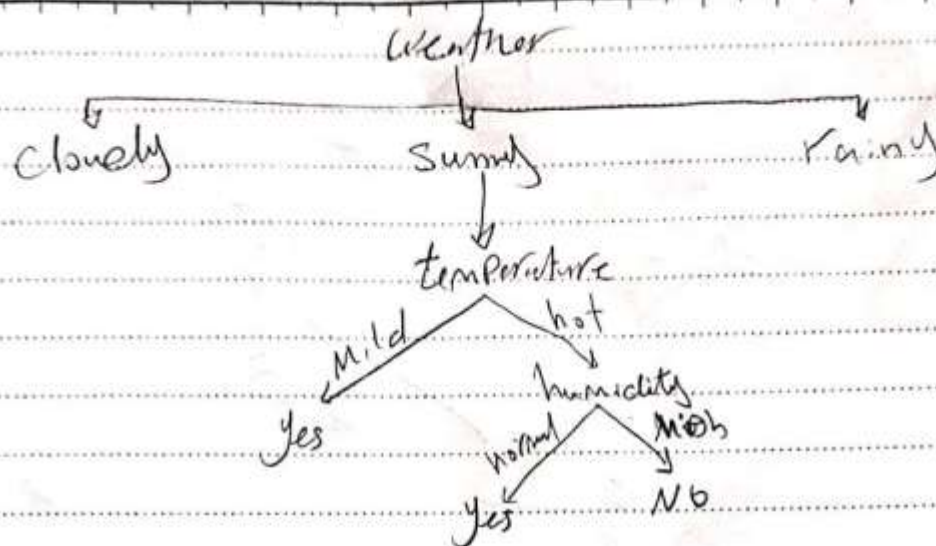 Weather
Cloudy Sunny rainy
temperature
Mild hot
humidity
Yes normal High
Yes No